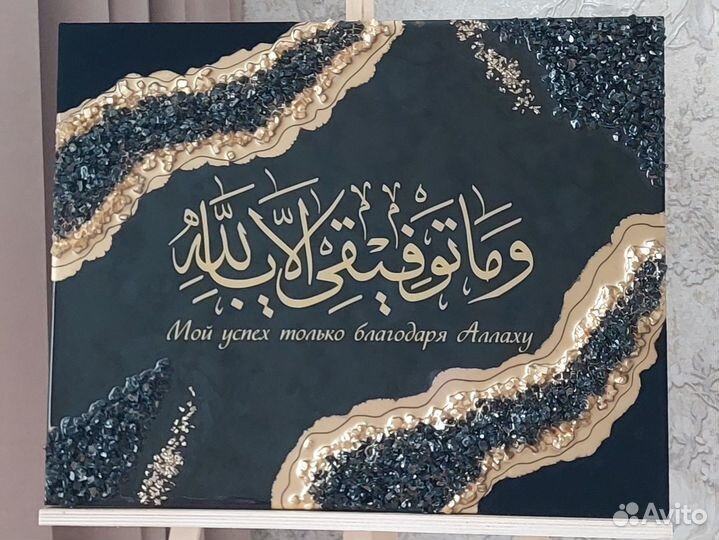 وَمَا تَوْفِيْقِي إِلَّا بِاللَّهِ
Мой успех только благодаря Аллаху
Avito